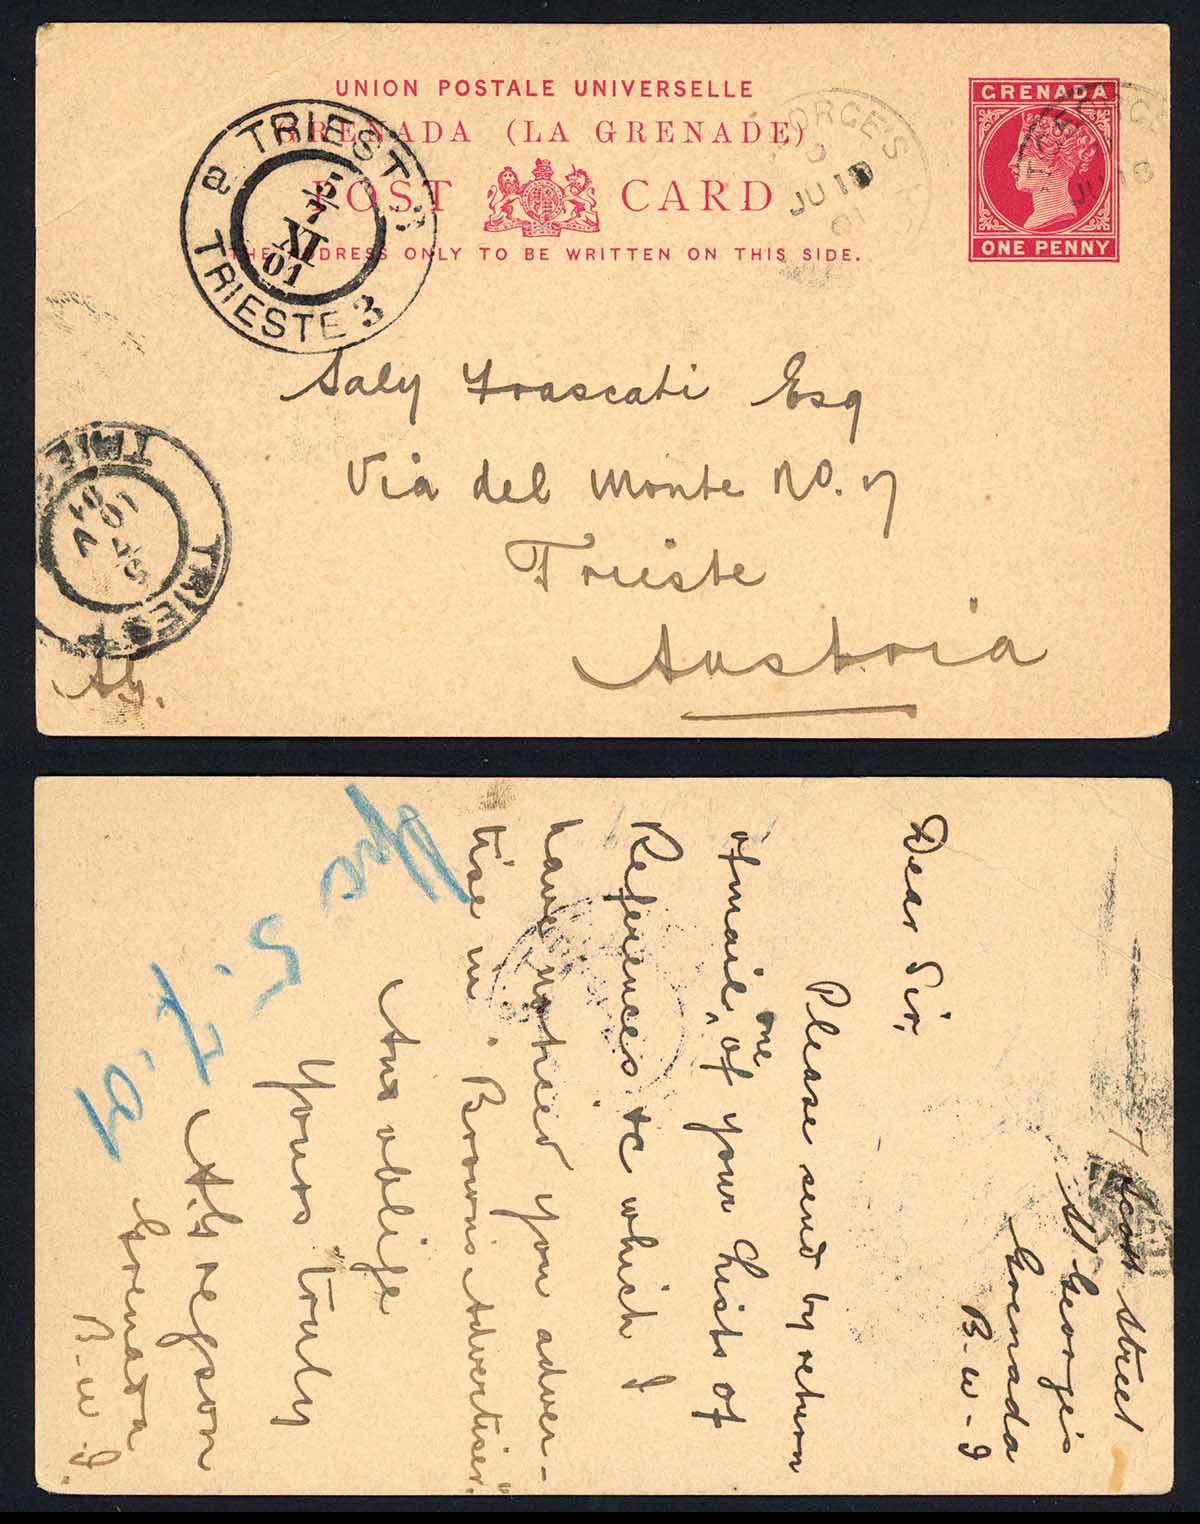 UNION POSTALE UNIVERSELLE
GRENADA (LA GRENADE)
POST CARD
THE ADDRESS ONLY TO BE WRITTEN ON THIS SIDE.
GRENADA
ONE PENNY
ORGE'S
JU 18
01
ORGE
JU 18
a TRIEST 3
5/7
XI
01
TRIESTE 3
Saly Frascati Esq
Via del Monte No. 7
Trieste
Austria
TRIEST
TRIEST
7 Scott Street
St George's
Grenada
B-W-I
Dear Sir,
Please send by return
of mail, one of your Lists of
References &c which I
have noticed you adver-
tise in "Brown's Advertiser"
And oblige
Yours truly
Grenada
B-W.I.